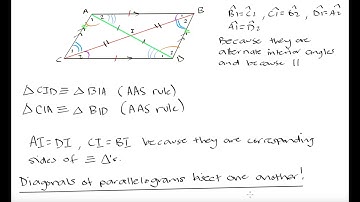 A
B
C
D
I
1
2
2
1
1
2
2
1
B̂1 = Ĉ1 , Ĉ1 = B̂2 , D̂1 = Â2
Â1 = D̂2
Because they are
alternate interior angles
and because ||
△ CID ≡ △ BIA (AAS rule)
△ CIA ≡ △ BID (AAS rule)
AI = DI , CI = BI because they are corresponding
sides of ≡ △'s.
Diagonals of parallelograms bisect one another!